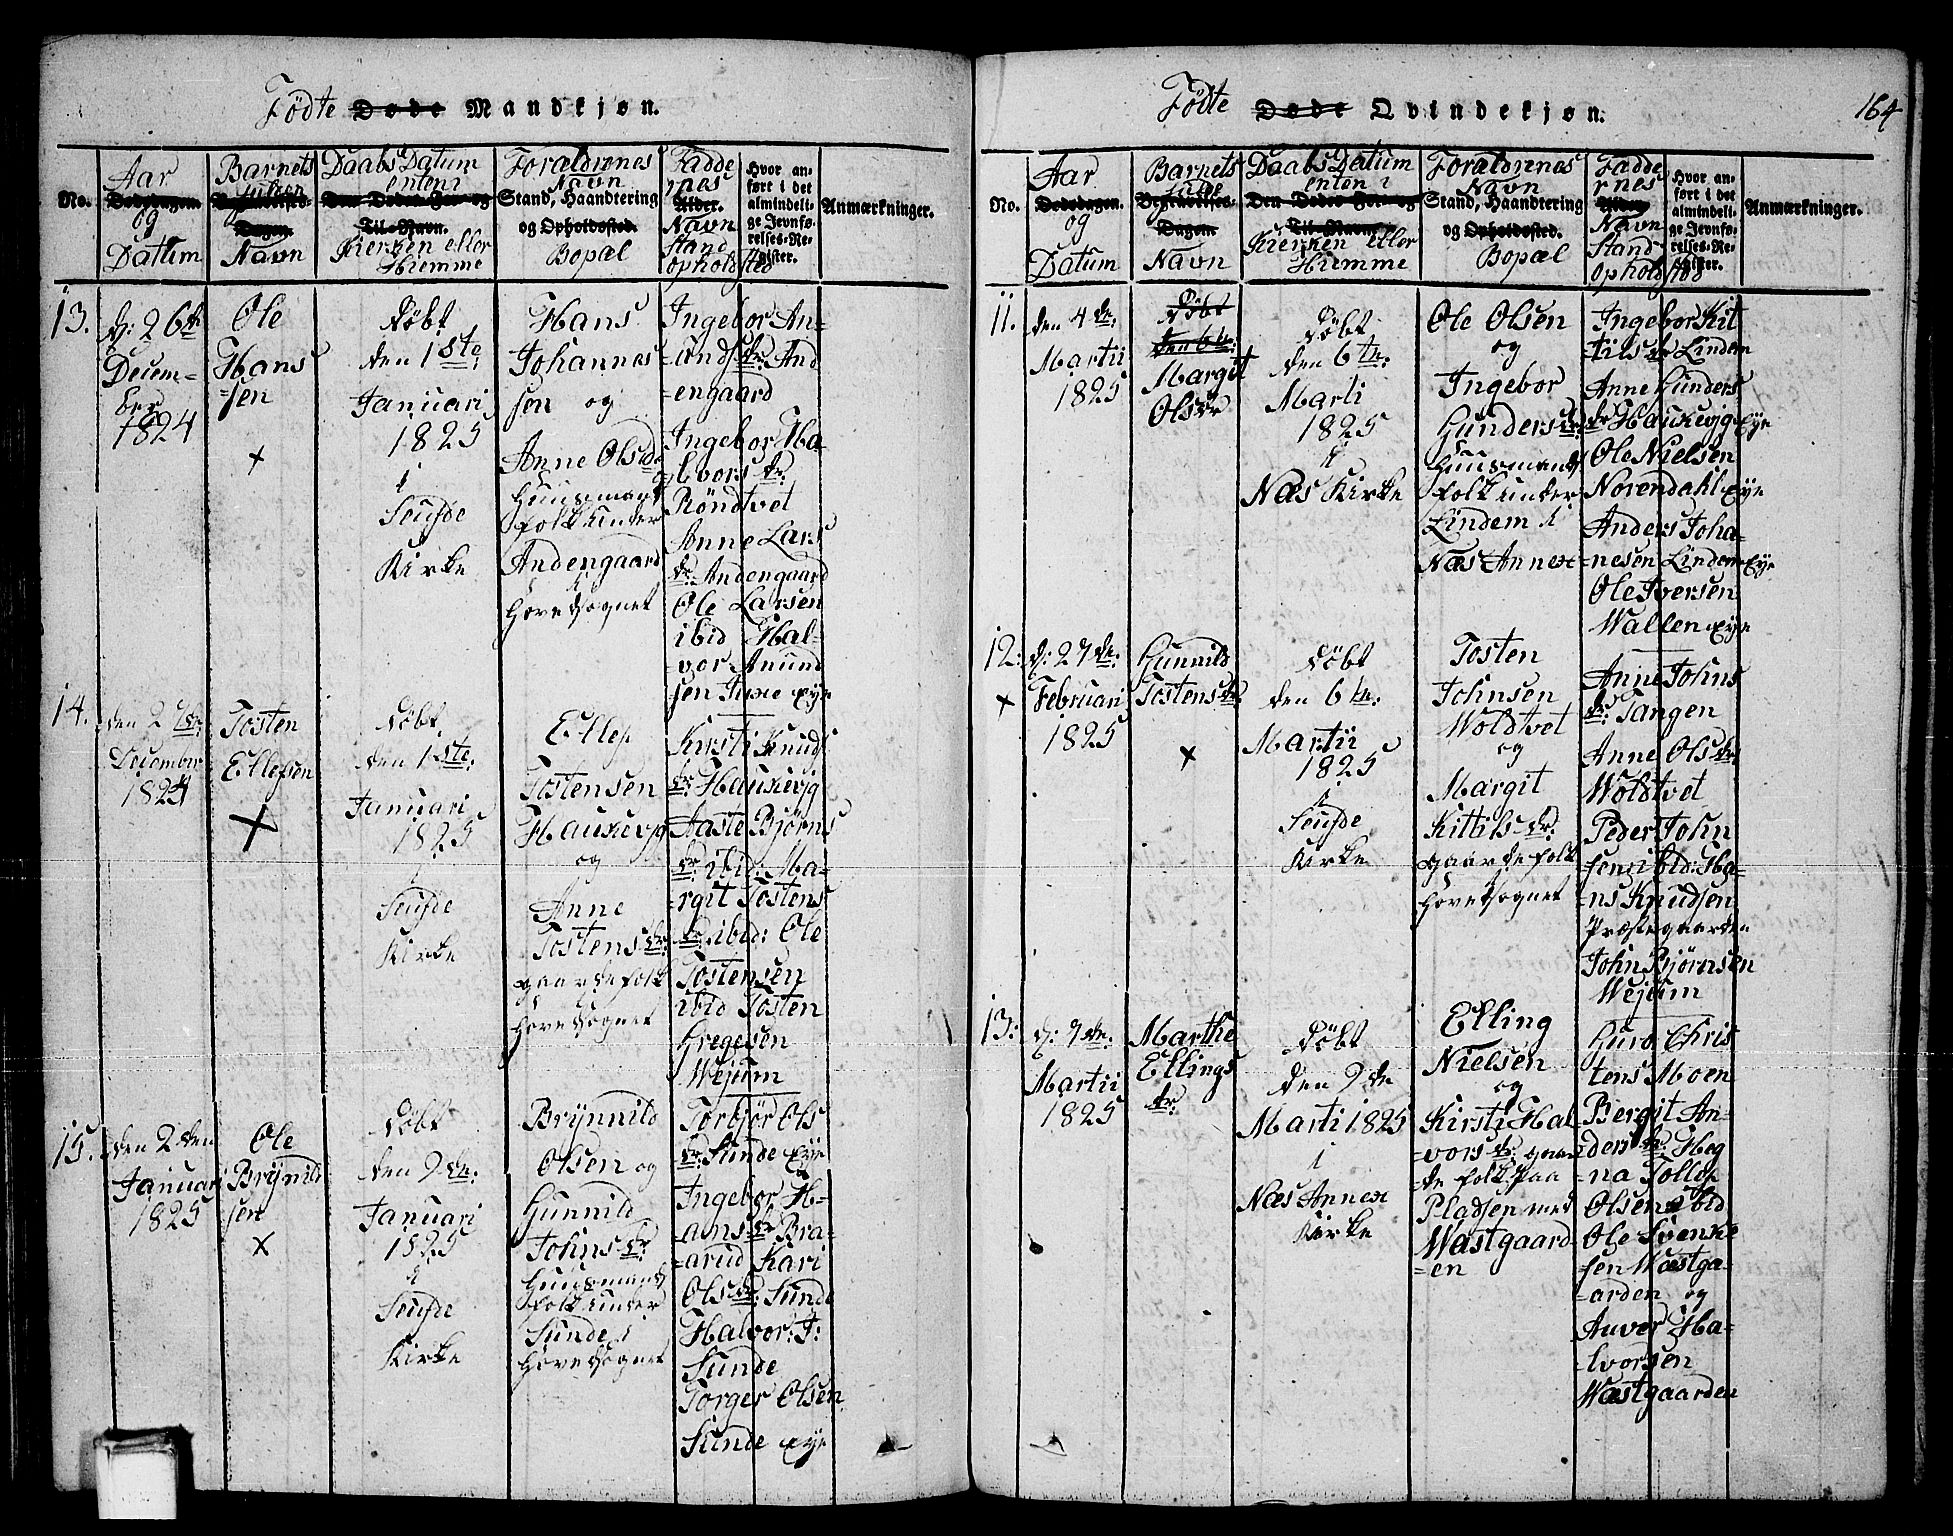 Födte Døde Mandkjøn.
No.
Aar
Dødsdagen.
og
Datum
Barnets
fulde
Begravelses-
Dagen.
Navn
Daabs Datum
enten i
Den Dødes For- og
Til-Navn.
Kierken eller
Hiemme
Forældrenes
Navn
Stand, Haandtering
og Opholdssted.
Bopæl
Fadde
rnes
Alder.
Navn
Stand
opholdsted
Hvor an-
ført i det
almindeli-
ge Jevnfø-
relses-Re-
gister.
Anmærkninger.
13.
d: 26de
Decem-
ber
1824
Ole
Hans
sen
+
Döbt
den 1ste
Januari
1825
i
Seufde
Kirke
Hans
Johannes
sen og
Anne Olsdr
Huusmands
folk under
Andengaard
i
Hovedsognet
Ingebor An-
-undsdr: And
-engaard
Ingebor Ha-
lvors dr:
Röndtvet
Anne Lars
dr: Andengaard
Ole Larsen
ibid Hal-
vor Anund
sen eye
14.
den 27de
December
1824
Tosten
Ellefsen
+
Döbt
den 1ste
Januari
1825
i
Seufde
Kirke
Ellef
Tostensen
Haukevjg
og
Anne
Tostensdr:
gaardefolk
i
Hovedsognet
Kirsti Knuds
dr: Haukevjg
Aaste Bjørns
dr: ibid: Ma-
-rgit Tostens
dr: ibid: Ole
Tostensen
ibid Tosten
Gregesen
Wejum
15.
den 2den
Januari
1825
Ole
Brÿnild
sen
x
Döbt
den 9de
Januari
1825
i
Seufde
Kirke
Brÿnnild
Olsen og
Gunnild
Johnsdr:
Huusmands
folk under
Sunde i
Hovedsognet
Torbjör Ols
dr: Sunde eye
Ingebor H-
ansdr Bra-
-arud Kari
Olsdr: Sunde
Halvor: J:
Sunde
Torger Olsen
Sunde eye
Födte Døde Qvindekjøn.
164
No.
Aar
Dødsdagen.
og
Datum
Barnets
fulde
Begravelses-
Dagen.
Navn
Daabs Datum
enten i
Den Dødes For- og
Til-Navn.
Kierken eller
Hiemme
Forældrenes
Navn
Stand, Haandtering
og Opholdssted.
Bopæl
Fadde
rnes
Alder
Navn
Stand
opholdsted
Hvor an-
ført i det
almindeli-
ge Jevnfø-
relses-Re-
gister.
Anmærkninger.
11.
den 4de:
Martii
1825
Döbt
den 6te:
Margit
Olsdr
Döbt
den 6te:
Marti
1825
i
Næs Kirke
Ole Olsen
og
Ingebor
Gundersdr:
Huusmands
folk under
Lindem i
Næs Annex
Ingebor Kit
-tilsdr Lindem
Anne Gunders
dr Haukevjg eye
Ole Nielsen
Norendahl eye
Anders Joha-
-nesen Lindem eye
Ole Iversen
Wallen eye
12:
x
d: 27de:
Februari
1825
Gunnild
Tostensdr
x
Döbt
den 6te:
Martii
1825
i
Seufde
Kirke
Tosten
Johnsen
Woldtvet
og
Margit
Kittilsdr:
gaardefolk
Hovedsognet
Anne Johns
dr: Tangen
Anne Olsdr
Woldtvet
Peder John
-sen ibid: Ha-
-ns Knudsen
Præstegaarden
John Bjørnsen
Wejum
13:
d: 7de:
Martii
1825
Marthe
Ellings
dr:
Döbt
den 9de
Marti 1825
i
Næs Annex
Kirke
Elling
Nielsen
og
Kirsti Hal
-vorsdr: gaar
-de folk paa
Pladsen med
Wæstgaard-
-en
Guro Chris
tens Moen
Bergit An-
-dersdr: Heg
-na Tollef
Olsen ibid
Ole Svenke
-sen Wæstga-
-arden og
Auver Ha-
-lvorsen
Wæstgaarden